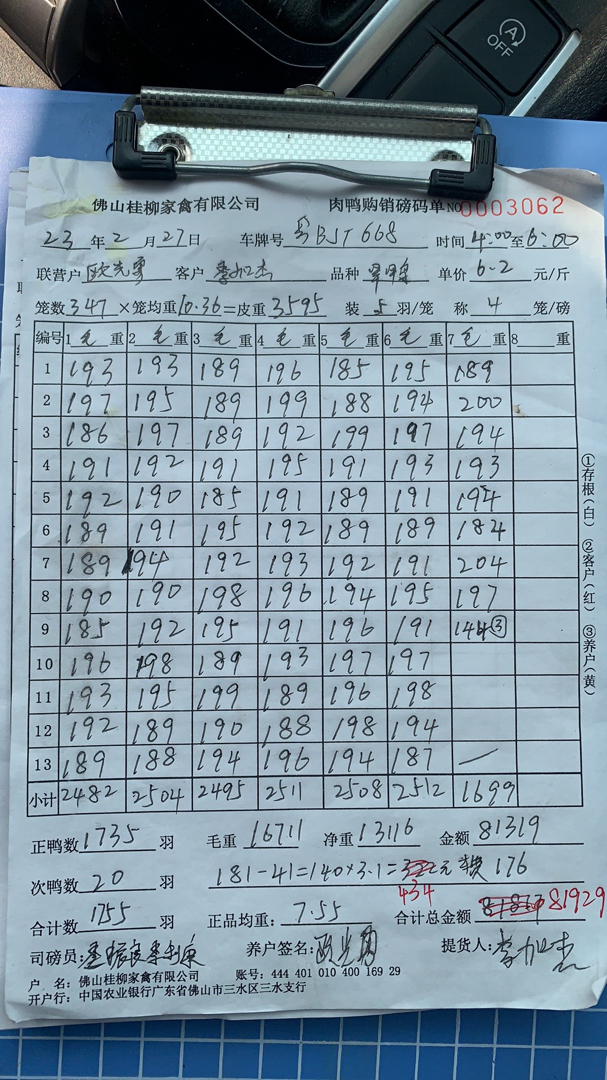 OFF
佛山桂柳家禽有限公司 肉鸭购销磅码单 NO 0003062
23 年 2 月 27 日 车牌号 粤BJT668 时间 4:00 至 6:00
联营户 欧光勇 客户 李加杰 品种 单价 6.2 元/斤
笼数 347 ×笼均重 10.36 =皮重 3595 装 5 羽/笼 称 4 笼/磅
编号 1 毛 重 2 毛 重 3 毛 重 4 毛 重 5 毛 重 6 毛 重 7 毛 重 8 重
1 193 193 189 196 185 195 189
2 197 195 189 199 188 194 200
3 186 197 189 192 199 197 194
4 191 192 191 195 191 193 193
5 192 190 185 191 189 191 194
6 189 191 195 192 189 189 184
7 189 194 192 193 192 191 204
8 190 190 198 196 194 195 197
9 185 192 195 191 196 191 144③
10 196 198 189 193 197 197
11 193 195 199 189 196 198
12 192 189 190 188 198 194
13 189 188 194 196 194 187 —
小计 2482 2504 2495 2511 2508 2512 1699
正鸭数 1735 羽 毛重 16711 净重 13116 金额 81319
次鸭数 20 羽 181-41=140×3.1= 元 176
434
合计数 1755 羽 正品均重: 7.55 合计总金额 81929
司磅员: 养户签名: 欧光勇 提货人: 李加杰
户 名: 佛山桂柳家禽有限公司 账号: 444 401 010 400 169 29
开户行: 中国农业银行广东省佛山市三水区三水支行
①存根(白) ②客户(红) ③养户(黄)